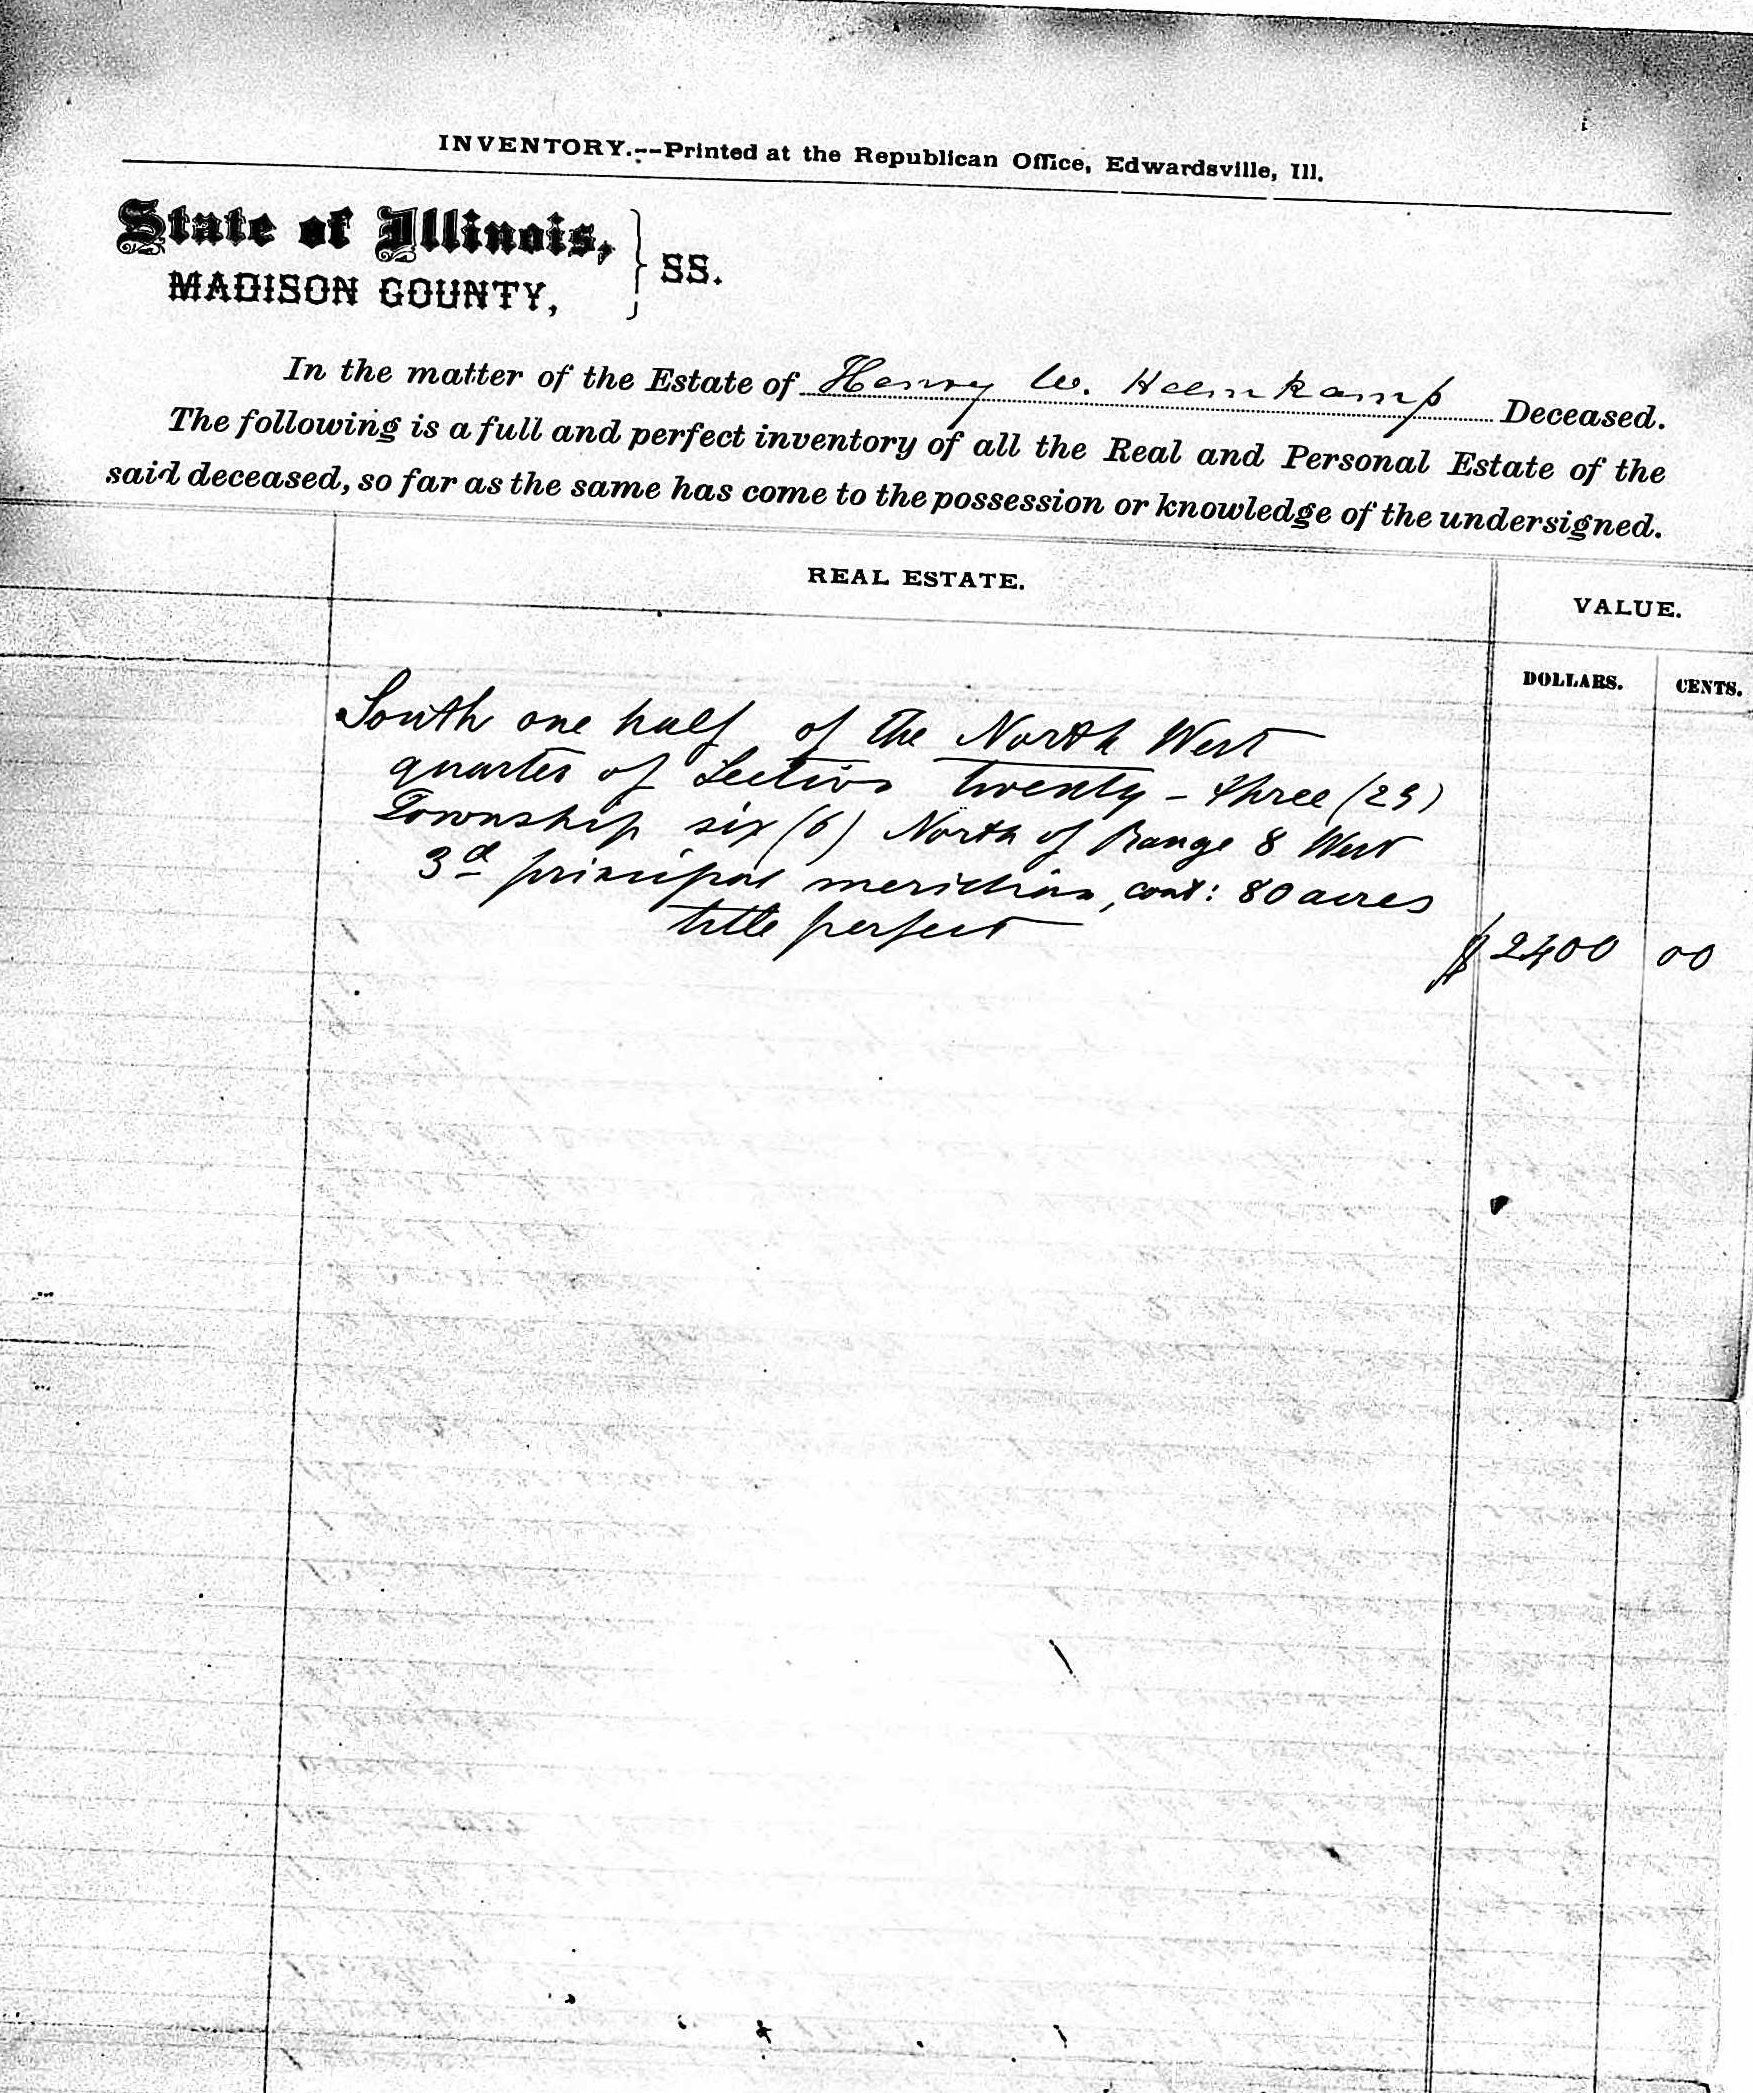 INVENTORY.--Printed at the Republican Office, Edwardsville, Ill.
State of Illinois,
MADISON COUNTY,
SS.
In the matter of the Estate of Henry W. Heemkamp Deceased.
The following is a full and perfect inventory of all the Real and Personal Estate of the
said deceased, so far as the same has come to the possession or knowledge of the undersigned.
REAL ESTATE.
VALUE.
DOLLARS.
CENTS.
South one half of the North West
quarter of Section twenty-three (23)
Township six (6) North of Range 8 West
3d principal meridian, cont: 80 acres
title perfect
$ 2400 00